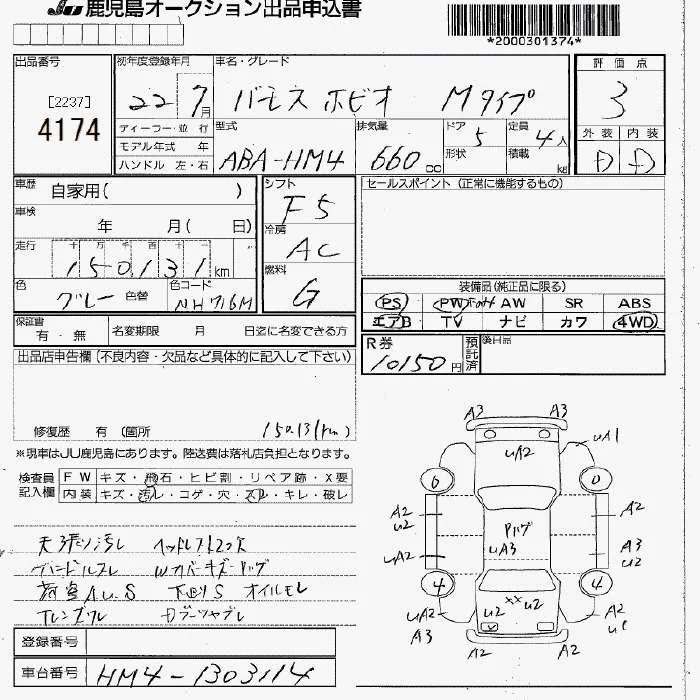 JU 鹿児島オークション出品申込書
*2000301374*
出品番号
[2237]
4174
初年度登録年月
22 7月
車名・グレード
バモス ホビオ Mタイプ
評価点
3
外装 内装
D D
ディーラー・並行
モデル年式 年
ハンドル 左・右
型式
ABA-HM4
排気量
660 cc
ドア 5
形状
定員 4人
積載 kg
車歴 自家用( )
車検 年 月( 日)
走行 十 万 千 百 十
150131 km
色 グレー 色替
色コード NH716M
シフト
F5
冷房
AC
燃料
G
セールスポイント (正常に機能するもの)
装備品(純正品に限る)
PS PW AW SR ABS
エアB TV ナビ カワ 4WD
保証書 有・無
名変期限 月 日迄に名変できる方
R券 10150円
預託済
後日品
出品店申告欄(不良内容・欠品など具体的に記入して下さい)
修復歴 有 (箇所
15013(km)
※現車はJU鹿児島にあります。陸送費は落札店負担となります。
検査員記入欄
FW キズ・飛石・ヒビ割・リペア跡・X要
内装 キズ・汚レ・コゲ・穴・スレ・キレ・破レ
天張リ汚レ ヘッドレスト2欠
ハンドルスレ Wカバーキズ
下廻りS オイルモレ
登録番号
車台番号 HM4-1303114
A3 A3
uA2 uA1
6 0
A2 u2 A2
Pハゲ
uA2 uA3 A3 u2
4 4
uA2 A3 u2 xx u2 A2
A2 A2